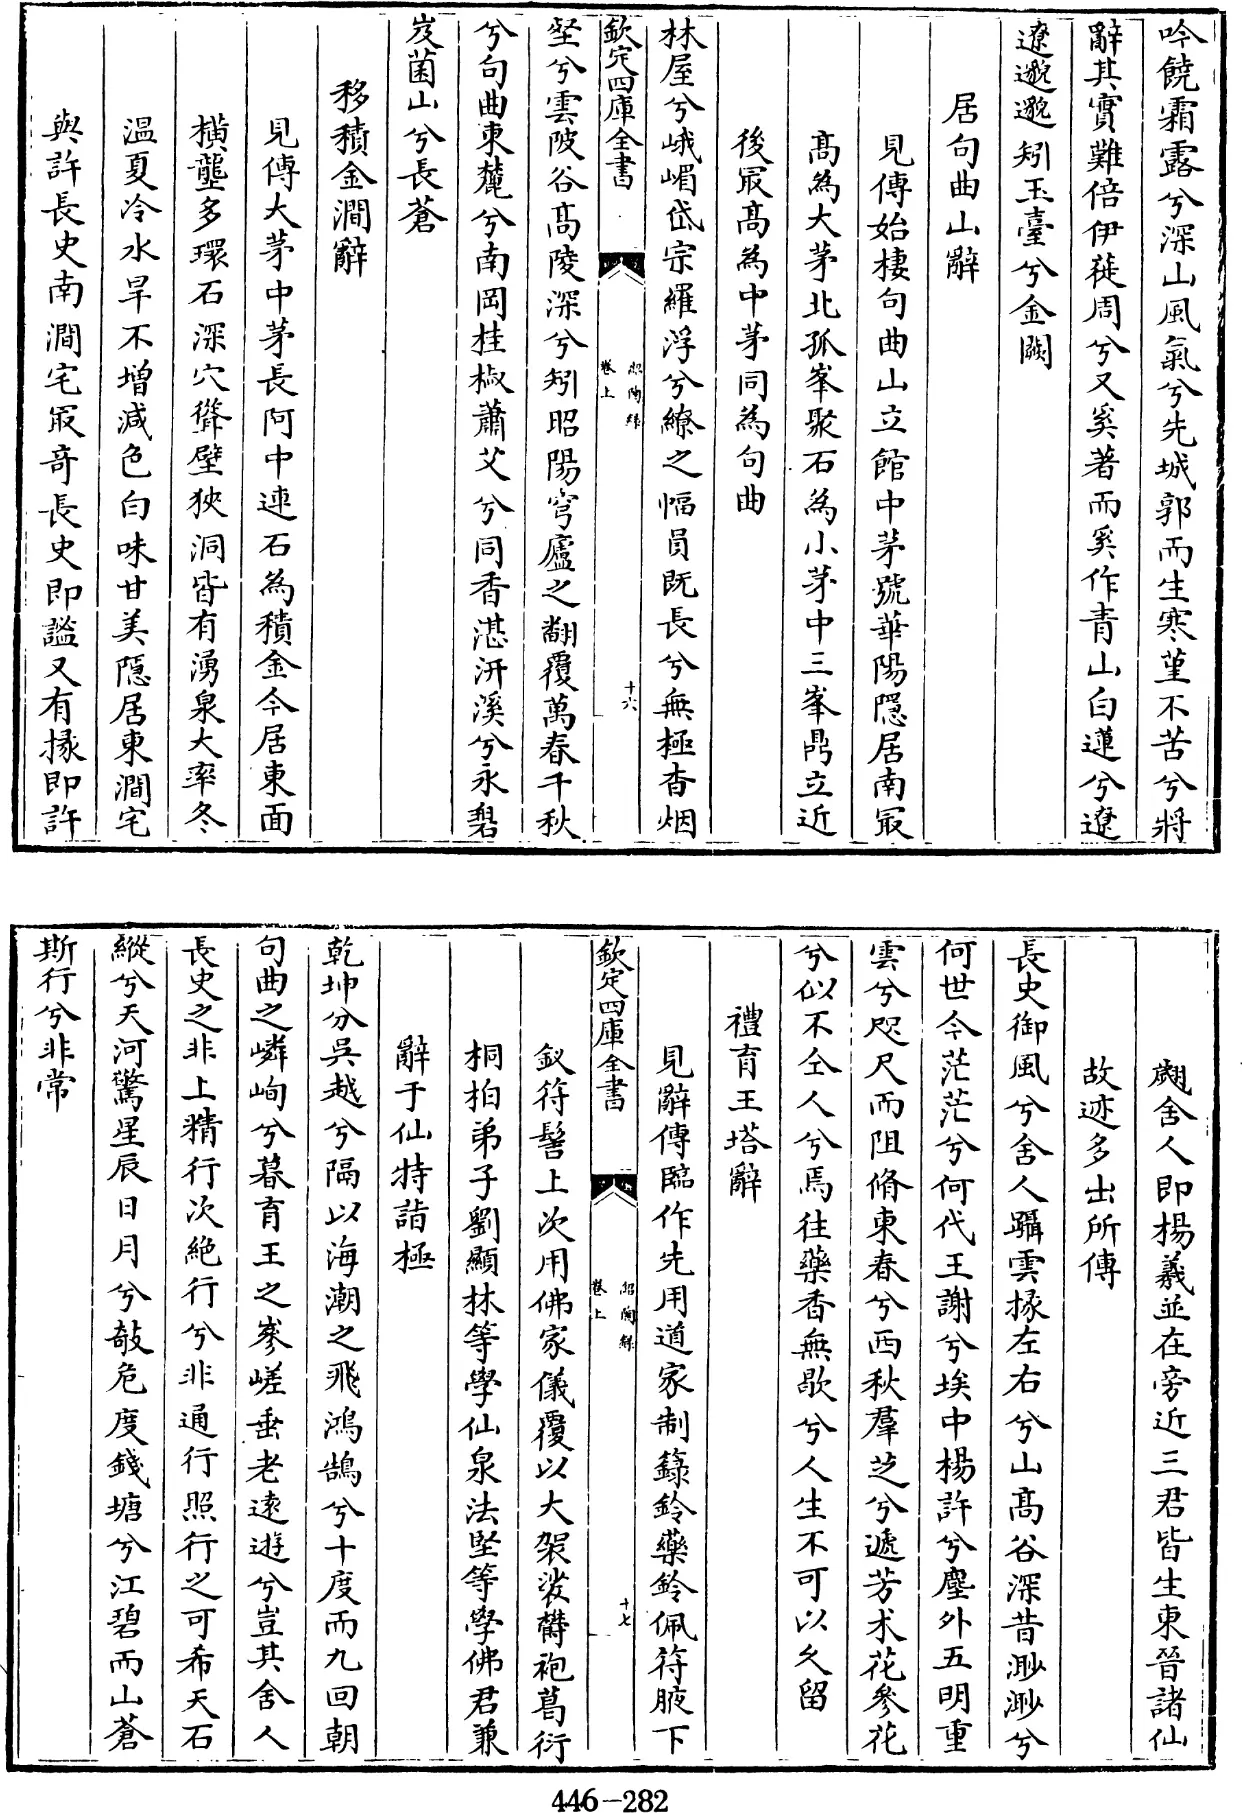 吟饒霜露兮深山風氣兮先城郭而生寒堇不苦兮將
辭其實難倍伊蓰周兮又奚著而奚作青山白蓮兮遼
遼邈邈矧玉臺兮金闕
居句曲山辭
見傳始棲句曲山立館中茅號華陽隱居南冣
髙為大茅北孤峯聚石為小茅中三峯鼎立近
後冣髙為中茅同為句曲
林屋兮峨嵋岱宗羅浮兮繚之幅員既長兮無極杳烟
欽定四庫全書
紹陶錄
卷上
十六
壑兮雲陂谷髙陵深兮矧昭陽穹廬之翻覆萬春千秋
兮句曲東麓兮南岡桂椒蕭艾兮同香湛汧溪兮永碧
岌菌山兮長蒼
移積金澗辭
見傳大茅中茅長阿中連石為積金今居東面
橫壟多環石深穴聳壁狹洞皆有湧泉大率冬
温夏冷水旱不增減色白味甘美隱居東澗宅
與許長史南澗宅冣竒長史即謐又有掾即許
翽舍人即楊羲並在旁近三君皆生東晉諸仙
故迹多出所傳
長史御風兮舍人躡雲掾左右兮山髙谷深昔渺渺兮
何世今茫茫兮何代王謝兮埃中楊許兮塵外五明重
雲兮咫尺而阻脩東春兮西秋羣芝兮遞芳术花參花
兮似不仝人兮焉往藥香無歇兮人生不可以久留
禮育王塔辭
見辭傳臨作先用道家制籙鈴藥鈴佩符腋下
欽定四庫全書
紹陶錄
卷上
十七
釵符髻上次用佛家儀覆以大袈裟欝袍葛衍
桐柏弟子劉顯林等學仙泉法堅等學佛君兼
辭于仙特詣極
乾坤分吳越兮隔以海潮之飛鴻鵠兮十度而九回朝
句曲之嶙峋兮暮育王之嵾嵯垂老逺遊兮豈其舍人
長史之非上精行次絶行兮非通行照行之可希天石
縱兮天河驚星辰日月兮敧危度錢塘兮江碧而山蒼
斯行兮非常
446-282